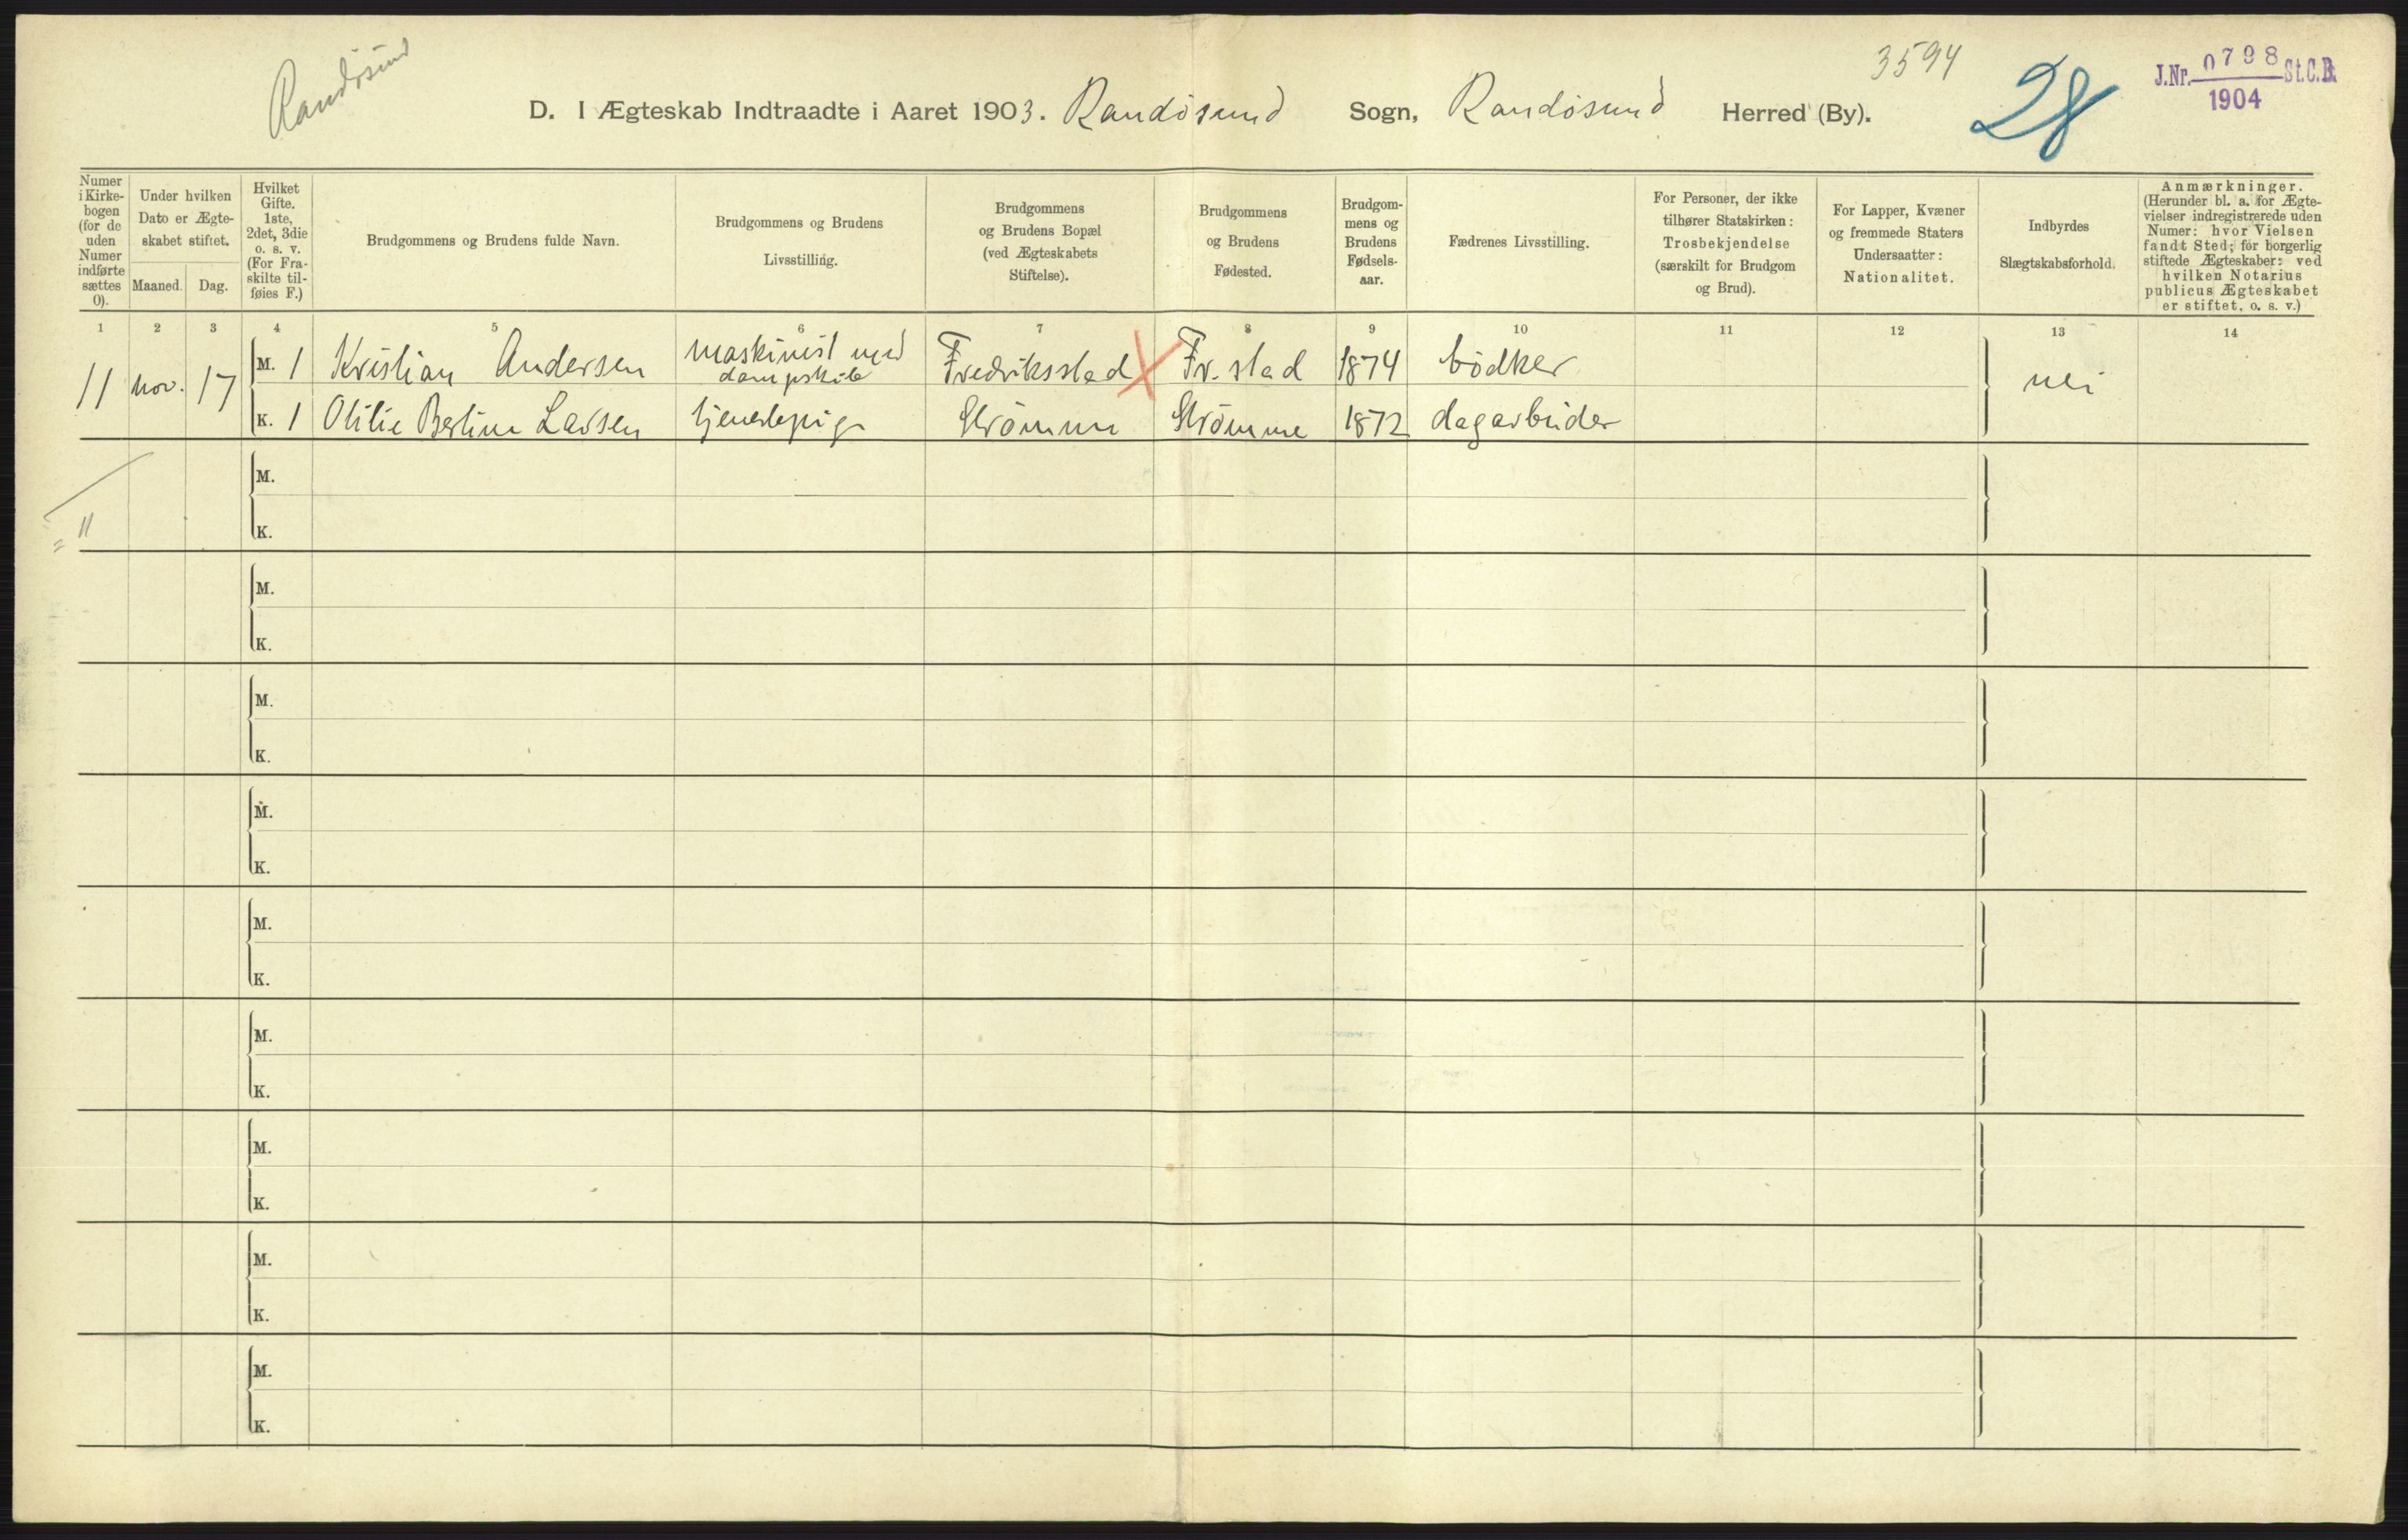 Randøsund
3594
28
J.Nr. 0798 St.C.B.
1904
D. I Ægteskab Indtraadte i Aaret 1903. Randøsund Sogn, Randøsund Herred (By).
Numer
i Kirke-
bogen
(for de
uden
Numer
indførte
sættes
0).
Under hvilken
Dato er Ægte-
skabet stiftet.
Maaned.
Dag.
Hvilket
Gifte.
1ste,
2det, 3die
o. s. v.
(For Fra-
skilte til-
føies F.)
Brudgommens og Brudens fulde Navn.
Brudgommens og Brudens
Livsstilling.
Brudgommens
og Brudens Bopæl
(ved Ægteskabets
Stiftelse).
Brudgommens
og Brudens
Fødested.
Brudgom-
mens og
Brudens
Fødsels-
aar.
Fædrenes Livsstilling.
For Personer, der ikke
tilhører Statskirken:
Trosbekjendelse
(særskilt for Brudgom
og Brud).
For Lapper, Kvæner
og fremmede Staters
Undersaatter:
Nationalitet.
Indbyrdes
Slægtskabsforhold.
Anmærkninger.
(Herunder bl. a. for Ægte-
vielser indregistrerede uden
Numer: hvor Vielsen
fandt Sted; for borgerlig
stiftede Ægteskaber: ved
hvilken Notarius
publicus Ægteskabet
er stiftet, o. s. v.)
1 2 3 4 5 6 7 8 9 10 11 12 13 14
11 nov. 17
M. 1 Kristian Andersen maskinist ved
dampskib
Fredriksstad Fr.stad 1874 bødker
nei
K. 1 Otilie Bertine Larsen tjenestepige Strømme Strømme 1872 dagarbeider
M.
11
K.
M.
K.
M.
K.
M.
K.
M.
K.
M.
K.
M.
K.
M.
K.
M.
K.